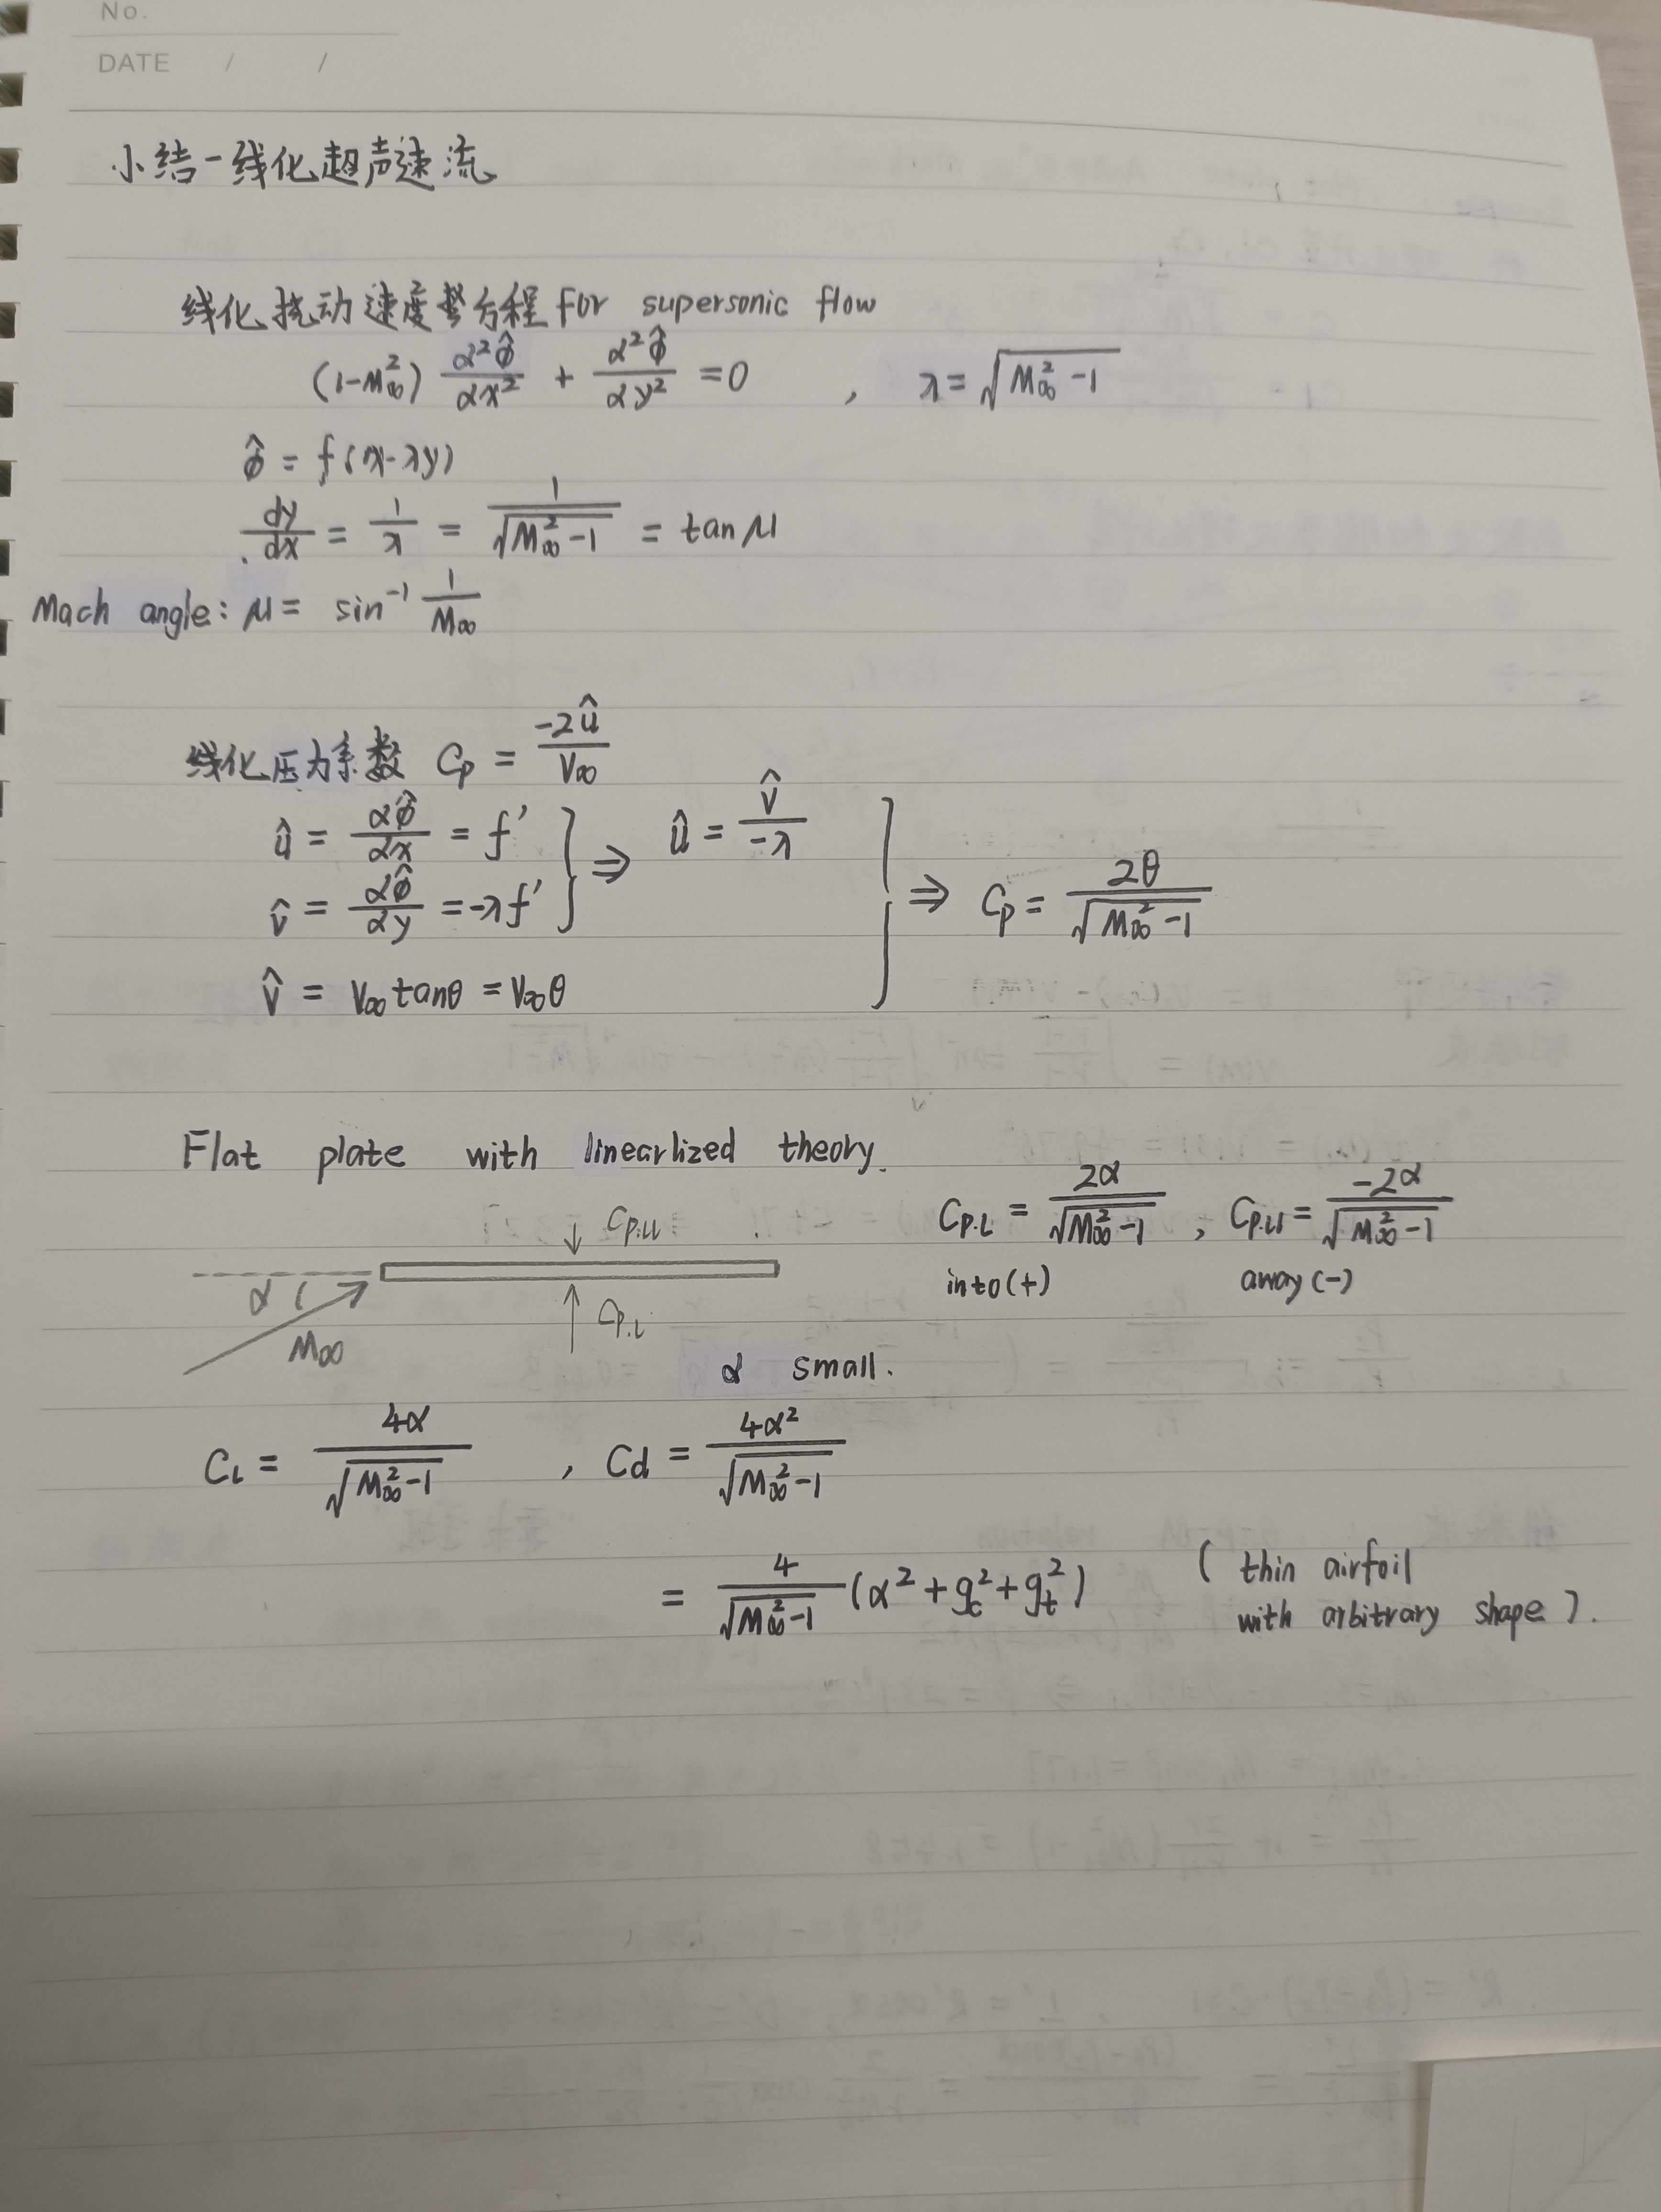 No.
DATE / /
小结-线化超声速流
线化扰动速度势方程 for supersonic flow
(1-M∞²) α²φ̂/αx² + α²φ̂/αy² = 0 , λ = √(M∞²-1)
φ̂ = f(x-λy)
dy/dx = 1/λ = 1/√(M∞²-1) = tan μ
Mach angle: μ = sin⁻¹ 1/M∞
线化压力系数 Cp = -2û/V∞
û = αφ̂/αx = f' } ⇒ û = v̂/-λ
v̂ = αφ̂/αy = -λf'
} ⇒ Cp = 2θ/√(M∞²-1)
v̂ = V∞ tanθ = V∞θ
Flat plate with linearlized theory.
Cp.u
Cp.L = 2α/√(M∞²-1) , Cp.u = -2α/√(M∞²-1)
into(+) away(-)
α
M∞
Cp.L
α small.
CL = 4α/√(M∞²-1) , Cd = 4α²/√(M∞²-1)
= 4/√(M∞²-1) (α²+gc²+gt²) ( thin airfoil
with arbitrary shape ).